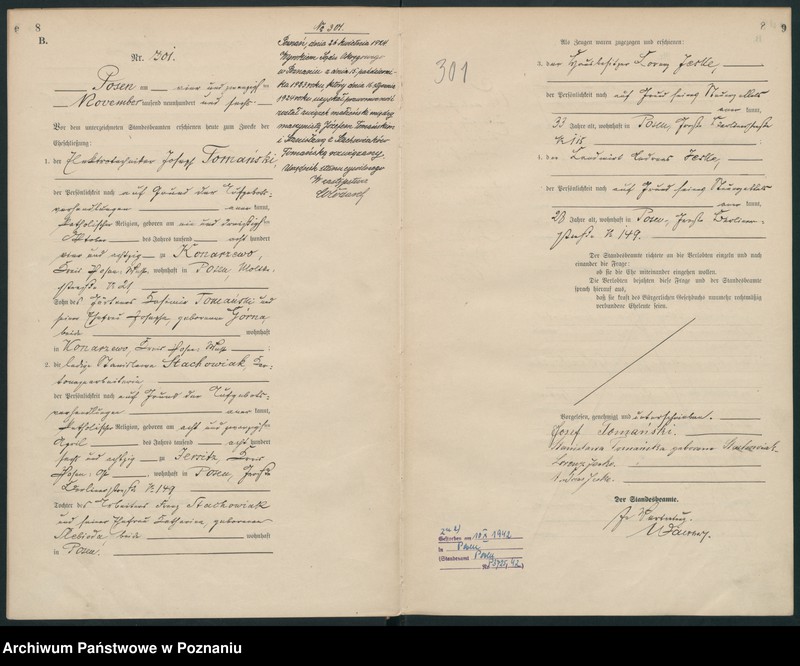 8
B.
Nr. 301.
Posen am vier und zwanzigsten
November tausend neunhundert und sechs.
Vor dem unterzeichneten Standesbeamten erschienen heute zum Zwecke der
Eheschließung:
1. der Elektrotechniker Joseph Tomański,
der Persönlichkeit nach auf Grund der Aufgebots-
verhandlungen kannt,
katholischer Religion, geboren am ein und dreißigsten
Oktober des Jahres tausend acht hundert
vier und achtzig zu Konarzewo,
Kreis Posen-West, wohnhaft in Posen,
straße N 21,
Sohn des Gärtners Tomański und
seiner Ehefrau Josepha, geborenen Górna,
beide wohnhaft
in Konarzewo, Kreis Posen-West
2. die ledige Stanislawa Stachowiak, Kar-
tonagearbeiterin,
der Persönlichkeit nach auf Grund der Aufgebots-
verhandlungen kannt,
katholischer Religion, geboren am acht und zwanzigsten
April des Jahres tausend acht hundert
sechs und achtzig zu Jersitz, Kreis
Posen-Ost, wohnhaft in Posen, Große
Berlinerstraße N 149
Tochter des Arbeiters Stachowiak
und seiner Ehefrau Katharina, geborenen
Nebioda beide wohnhaft
in Posen.
N° 301.
Poznań, dnia 26 kwietnia 1924
Wyrokiem Sądu Okręgowego
w Poznaniu z dnia 15 październi-
ka 1923 roku, który dnia 15 stycznia
1924 roku uzyskał prawomocność
został związek małżeński między
Józefem Tomańskim
i Stanisławą z Stachowiaków
Tomańską rozwiązany.
Urzędnik stanu cywilnego
W zastępstwie
9
301
Als Zeugen waren zugezogen und erschienen:
3. der Hausbesitzer Lorenz Jeske,
der Persönlichkeit nach auf Grund seines Steuerzettels
kannt,
33 Jahre alt, wohnhaft in Posen, Große Berlinerstraße
4. der Andreas Jeske,
der Persönlichkeit nach auf Grund seines Steuerzettels
kannt,
28 Jahre alt, wohnhaft in Posen, Große Berliner-
straße N 149.
Der Standesbeamte richtete an die Verlobten einzeln und nach
einander die Frage:
ob sie die Ehe miteinander eingehen wollen.
Die Verlobten bejahten diese Frage und der Standesbeamte
sprach hierauf aus,
daß sie kraft des Bürgerlichen Gesetzbuchs nunmehr rechtmäßig
verbundene Eheleute seien.
Vorgelesen, genehmigt und unterschrieben.
Józef Tomański.
Stanisława Tomańska geborene Stachowiak.
Lorenz Jeske
Andreas Jeske
Der Standesbeamte.
In Vertretung.
Gestorben am 1942
in Posen
(Standesamt Posen
Archiwum Państwowe w Poznaniu